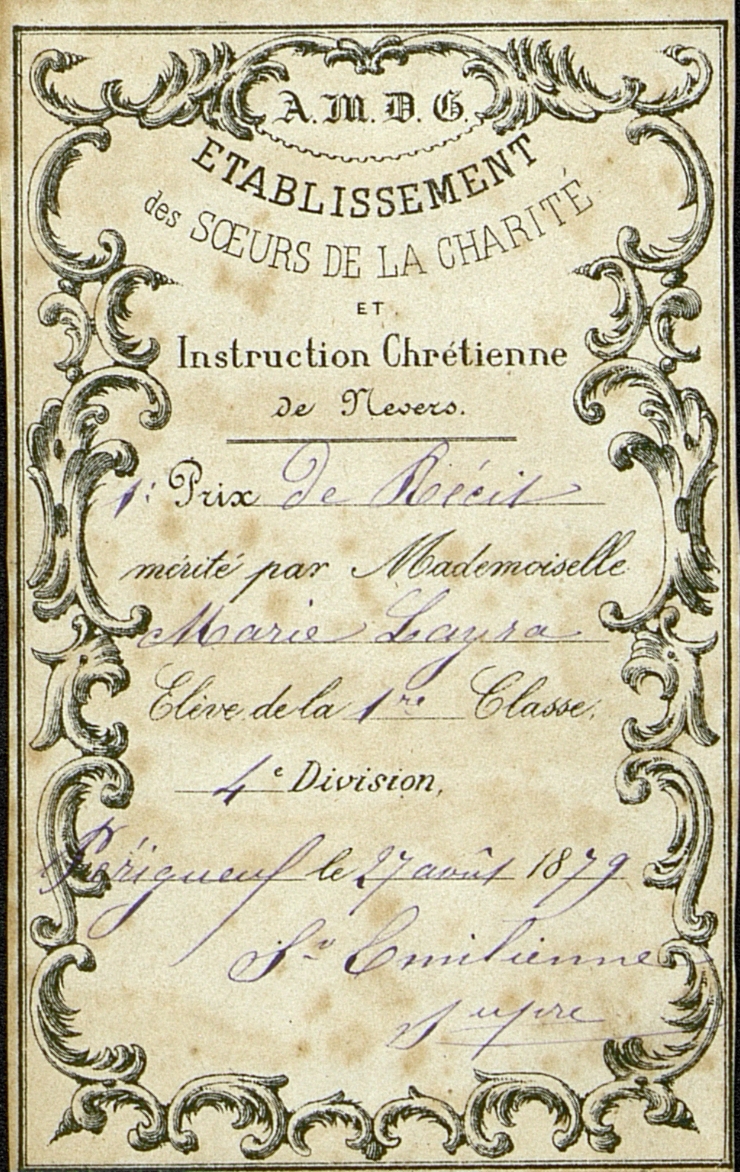 A. M. D. G.
ETABLISSEMENT
des SŒURS DE LA CHARITÉ
ET
Instruction Chrétienne
de Nevers.
1: Prix de Récit
mérité par Mademoiselle
Marie Layra
Elève de la 1re Classe.
4e Division,
Périgueux le 27 août 1879
Sr Emilienne
Supre